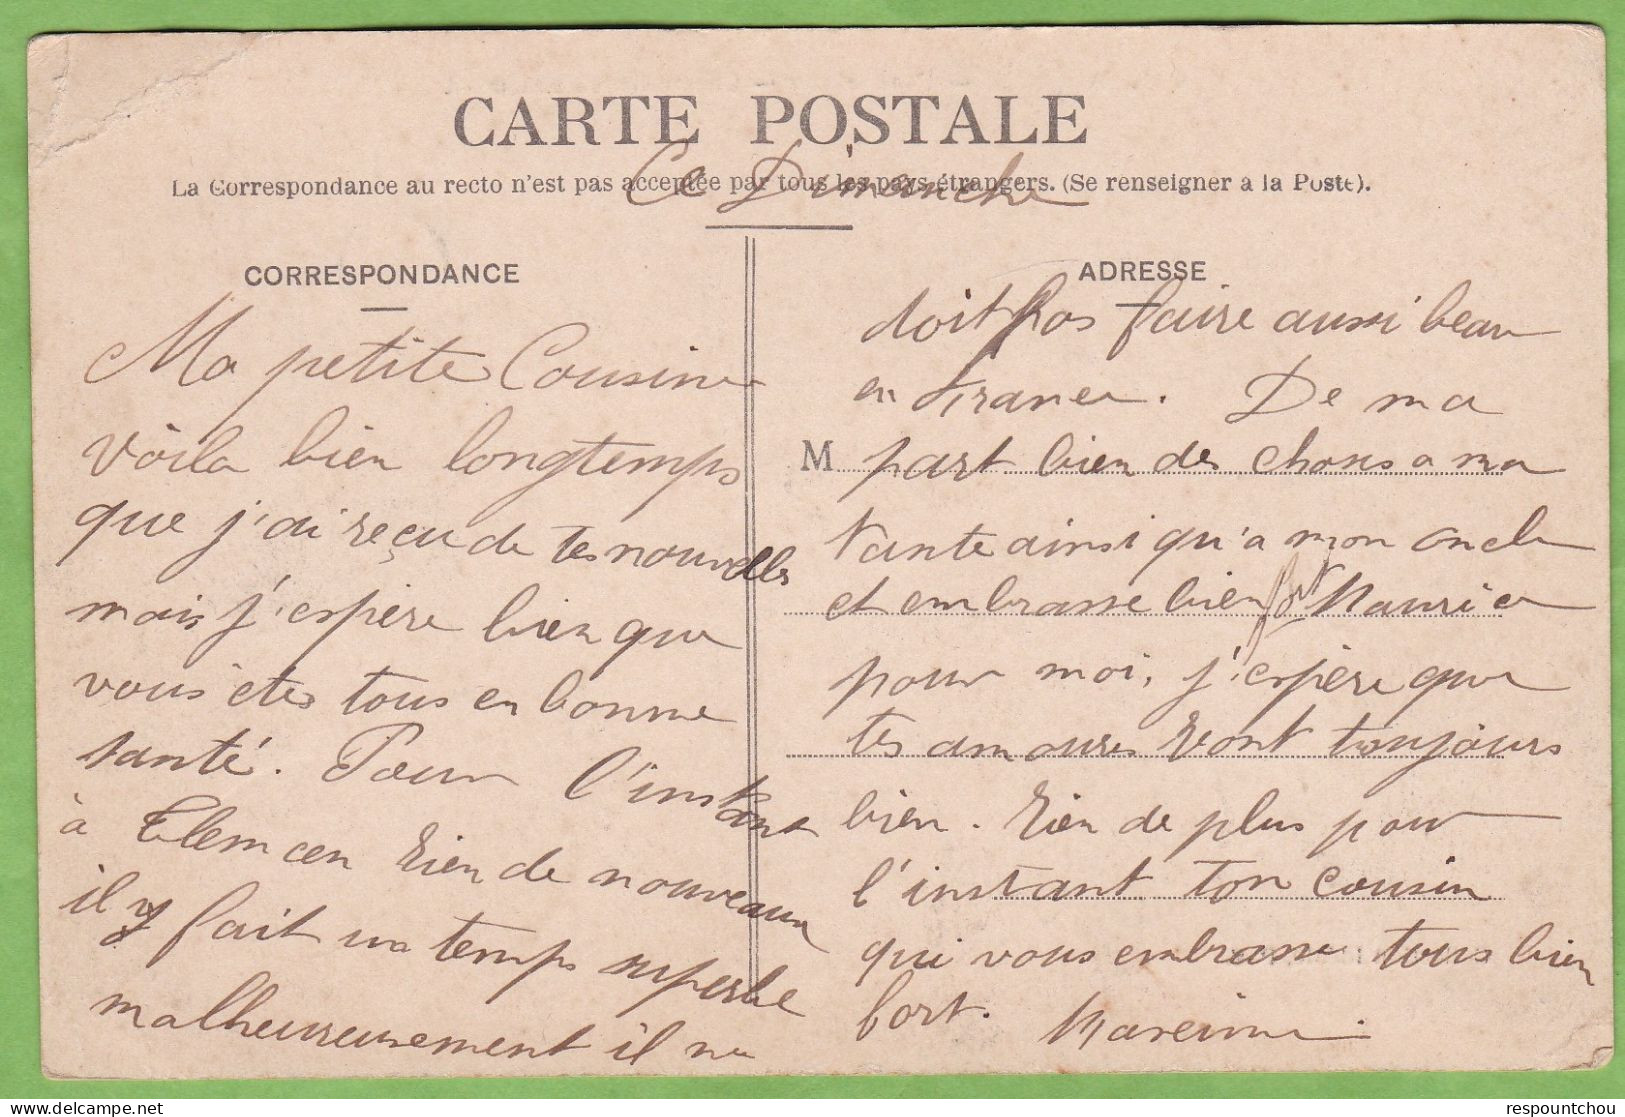 CARTE POSTALE
La Correspondance au recto n'est pas acceptée par tous les pays étrangers. (Se renseigner à la Poste).
Ce Dimanche
CORRESPONDANCE
Ma petite Cousine
voila bien longtemps
que j'ai reçu de tes nouvelles
mais j'espère bien que
vous êtes tous en bonne
santé. Pour l'instant
à Tlemcen rien de nouveau
il y fait un temps superbe
malheureusement il ne
ADRESSE
doit pas faire aussi beau
en France. De ma
M part bien des choses a ma
tante ainsi qu'a mon oncle
et embrasse bien fort Maurice
pour moi, j'espère que
tes amours vont toujours
bien. Rien de plus pour
l'instant ton cousin
qui vous embrasse tous bien
fort.
delcampe.net
respountchou